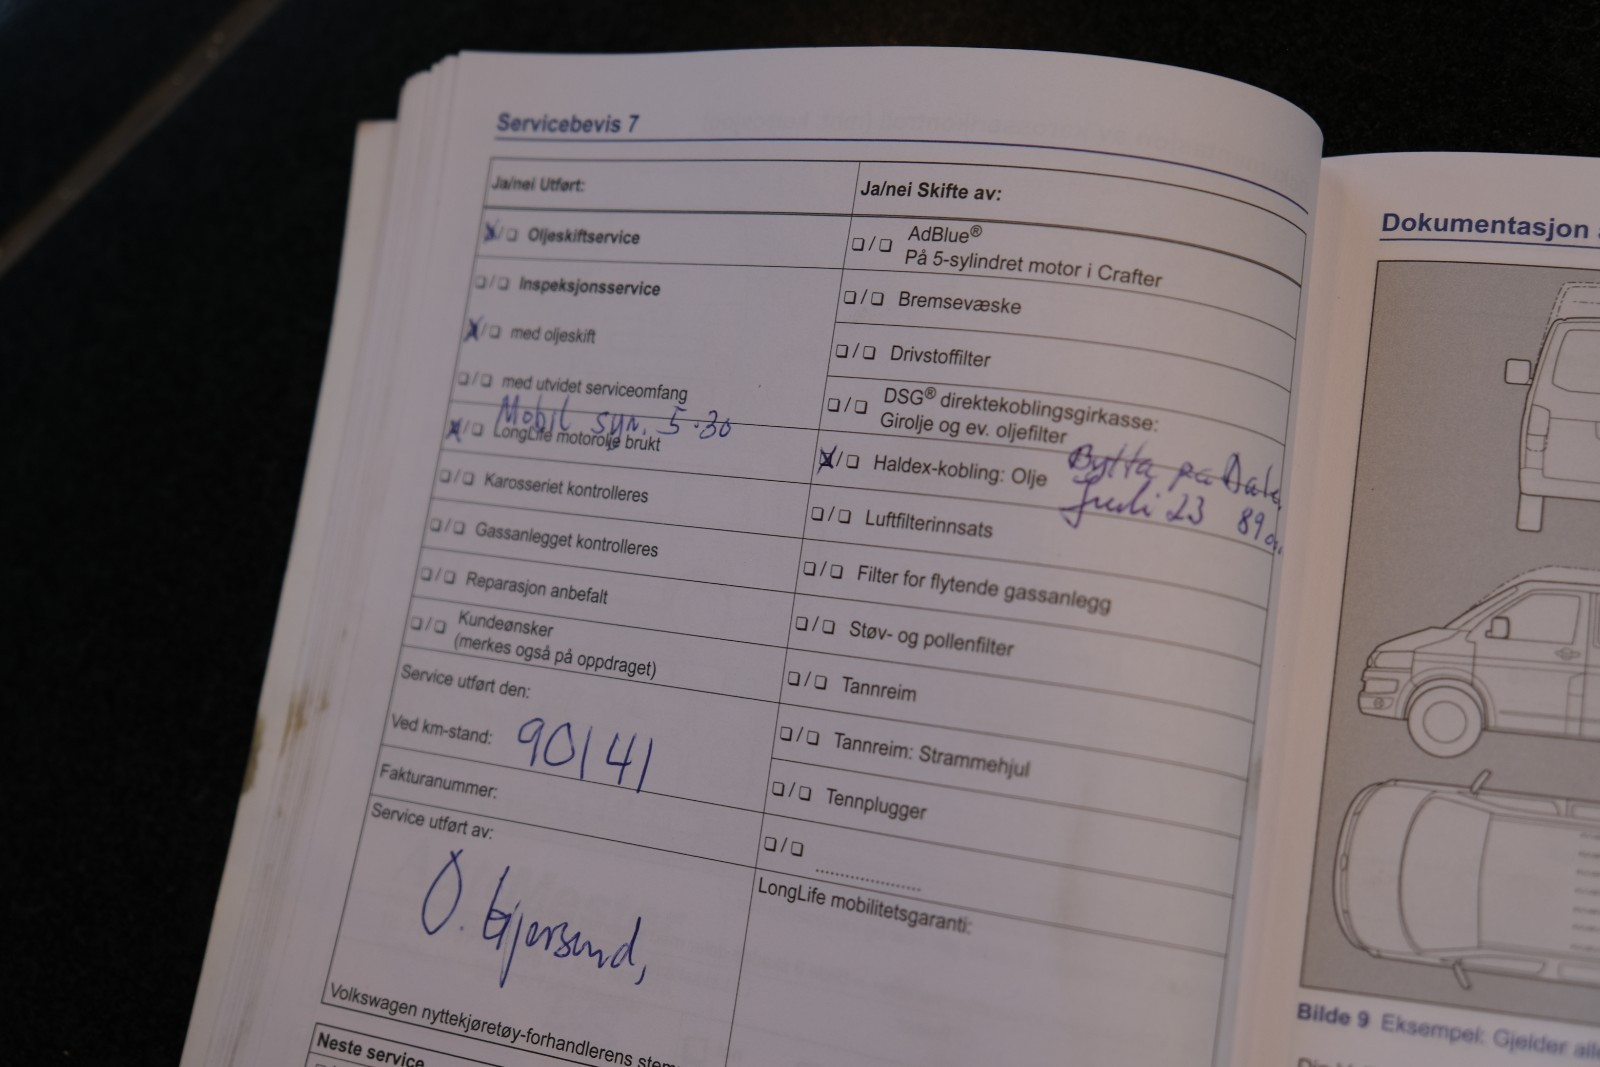 Servicebevis 7
Ja/nei Utført:
X/❏ Oljeskiftservice
❏/❏ Inspeksjonsservice
X/❏ med oljeskift
❏/❏ med utvidet serviceomfang
Mobil syn. 5-30
X/❏ LongLife motorolje brukt
❏/❏ Karosseriet kontrolleres
❏/❏ Gassanlegget kontrolleres
❏/❏ Reparasjon anbefalt
❏/❏ Kundeønsker
(merkes også på oppdraget)
Service utført den:
Ved km-stand: 90141
Fakturanummer:
Service utført av:
Ø.
Volkswagen nyttekjøretøy-forhandlerens
Neste service
Ja/nei Skifte av:
❏/❏ AdBlue®
På 5-sylindret motor i Crafter
❏/❏ Bremsevæske
❏/❏ Drivstoffilter
❏/❏ DSG® direktekoblingsgirkasse:
Girolje og ev. oljefilter
X/❏ Haldex-kobling: Olje
Bytta på
23 89
❏/❏ Luftfilterinnsats
❏/❏ Filter for flytende gassanlegg
❏/❏ Støv- og pollenfilter
❏/❏ Tannreim
❏/❏ Tannreim: Strammehjul
❏/❏ Tennplugger
❏/❏ ....................
LongLife mobilitetsgaranti:
Dokumentasjon
Bilde 9 Eksempel: Gjelder